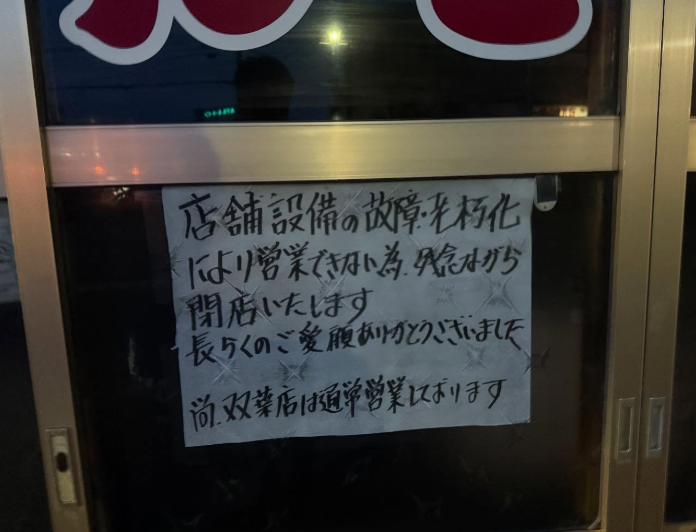 店舗設備の故障・老朽化
により営業できない為、残念ながら
閉店いたします
長らくのご愛顧ありがとうございました
尚、双葉店は通常営業しております